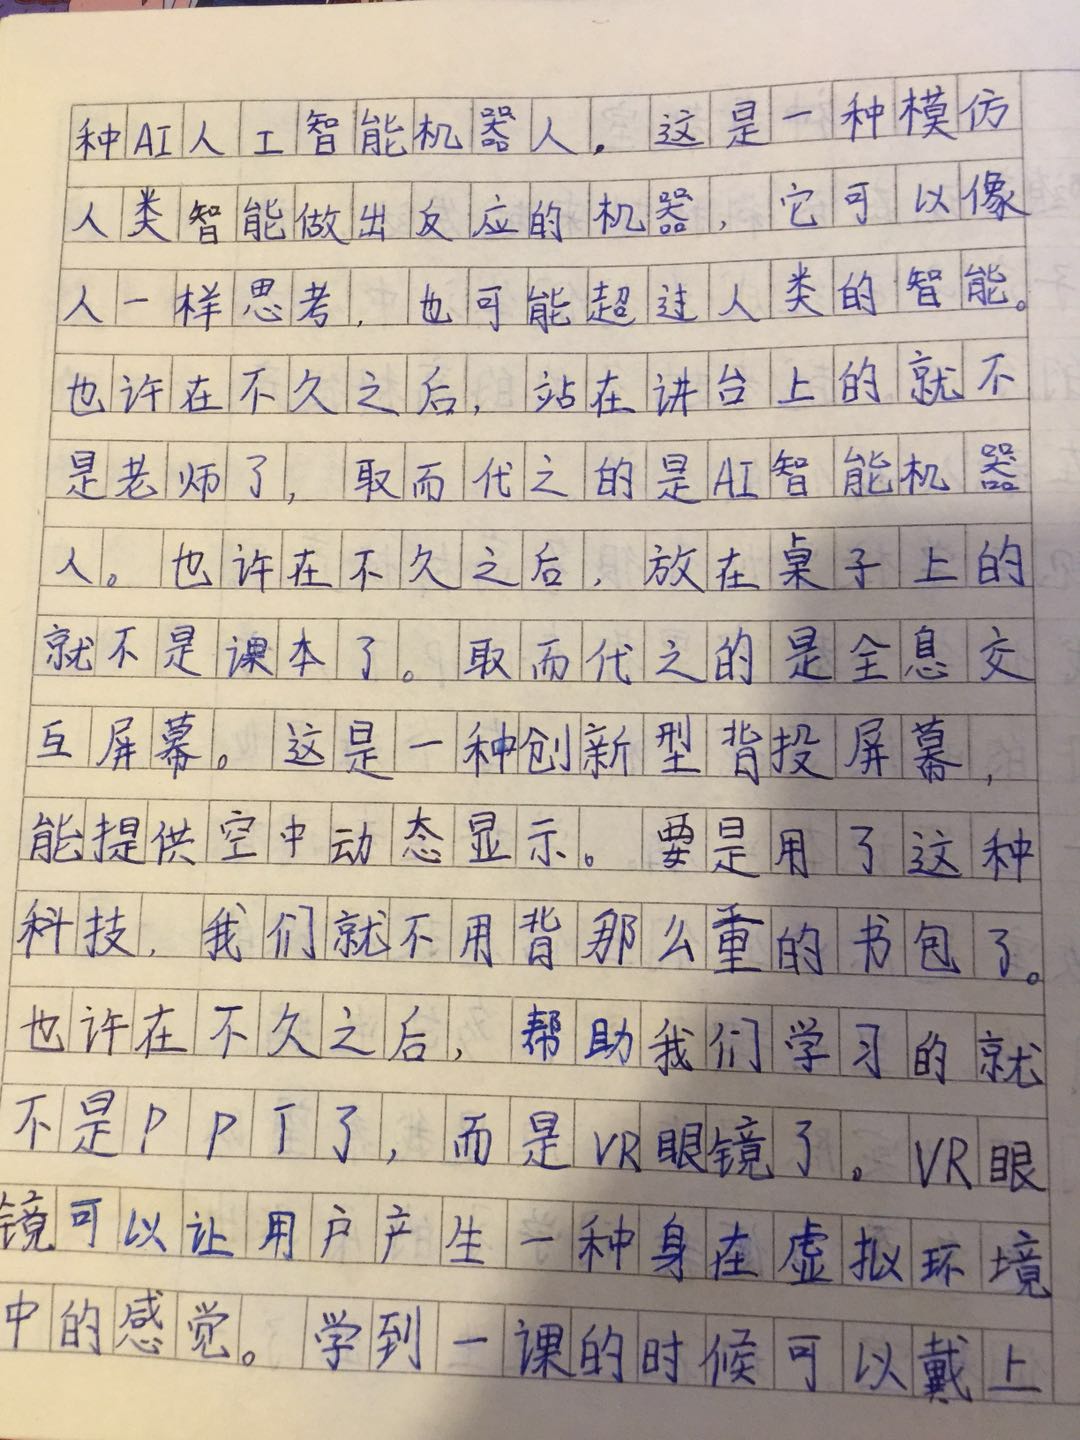 种AI人工智能机器人。这是一种模仿
人类智能做出反应的机器，它可以像
人一样思考，也可能超过人类的智能。
也许在不久之后，站在讲台上的就不
是老师了，取而代之的是AI智能机器
人。也许在不久之后，放在桌子上的
就不是课本了。取而代之的是全息交
互屏幕。这是一种创新型背投屏幕，
能提供空中动态显示。要是用了这种
科技，我们就不用背那么重的书包了。
也许在不久之后，帮助我们学习的就
不是PPT了，而是VR眼镜了。VR眼
镜可以让用户产生一种身在虚拟环境
中的感觉。学到一课的时候可以戴上